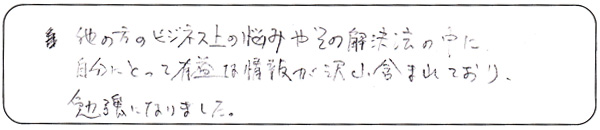 他の方のビジネス上の悩みやその解決法の中に、
自分にとって有益な情報が沢山含まれており、
勉強になりました。